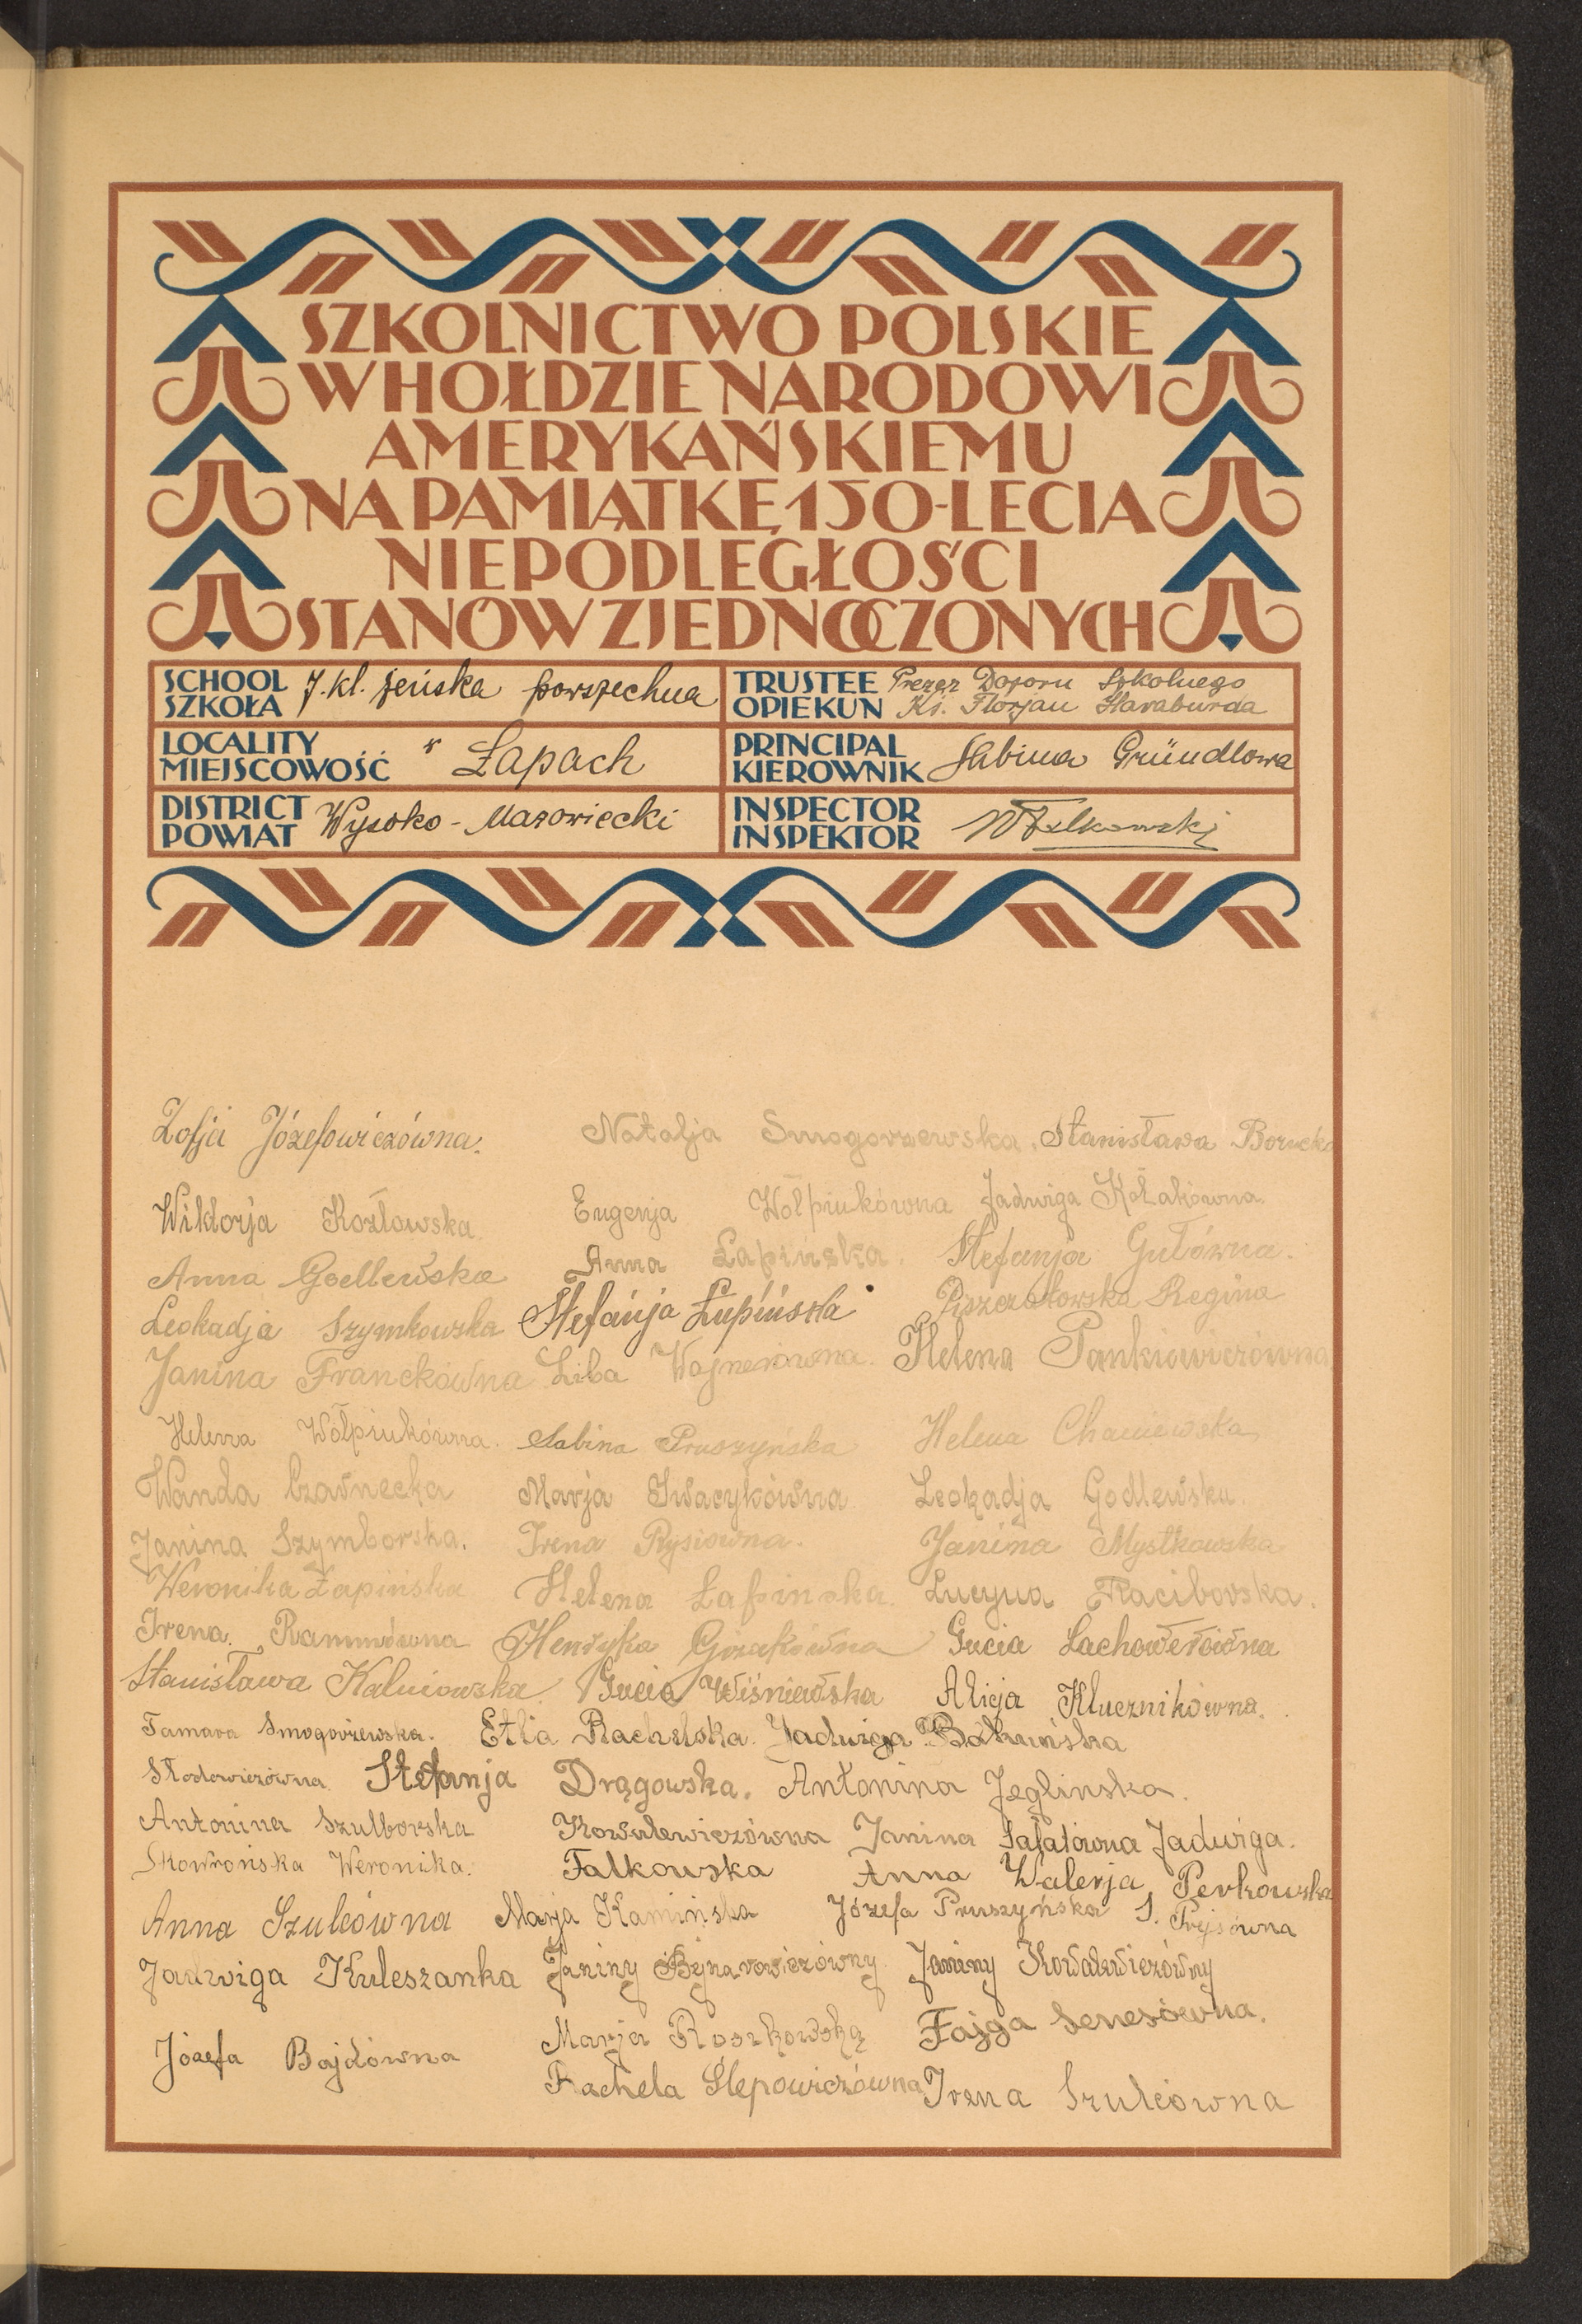 SZKOLNICTWO POLSKIE
W HOŁDZIE NARODOWI
AMERYKAŃSKIEMU
NA PAMIĄTKĘ 150-LECIA
NIEPODLEGŁOŚCI
STANÓW ZJEDNOCZONYCH
SCHOOL
SZKOŁA 7.kl. żeńska powszechna
TRUSTEE Prezes Dozoru Szkolnego
OPIEKUN Ks. Florjan Haraburda
LOCALITY
MIEJSCOWOŚĆ w Łapach
PRINCIPAL
KIEROWNIK Sabina Gründlowa
DISTRICT
POWIAT Wysoko-Mazowiecki
INSPECTOR
INSPEKTOR
Zofja Józefowiczówna. Natalja Smogorzewska. Stanisława Borucka
Wiktorja Kozłowska Eugenja Wołpiukówna Jadwiga Kołakówna
Anna Godlewska Anna Łapińska. Stefanja Gutówna.
Leokadja Szymkowska Stefanja Łupińska Regina
Janina Franckówna Liba Wajnerówna. Helena Pankiewiczówna
Helena Wołpiukówna. Sabina Pruszyńska Helena Chaniewska
Wanda Czarnecka Marja Iwacykówna Leokadja Godlewska.
Janina Szymborska. Irena Rysiówna. Janina Mystkowska
Weronika Łapińska Helena Łapinska. Lucyna Raciborska.
Irena Henryka Gizakówna Gucia Lachowerówna
Stanisława Kalniowska. Gucia Wiśniewska Alicja Klucznikówna.
Tamara Smogorzewska. Etla Rachelska. Jadwiga Bakuńska
Stefanja Drągowska. Antonina Jeglinska.
Antonina Szulborska Kowalewiczówna Janina Sałatówna Jadwiga.
Skowrońska Weronika. Falkowska Anna Walerja Perkowska
Anna Szulcówna Marja Kamińska Józefa Pruszyńska S. Prejsówna
Jadwiga Kuleszanka Janiny Bynarowiczówny Janiny Kowalewiczówny
Józefa Bajdówna Marja Roszkowską Fajga Senesówna.
Rachela Ślepowiczówna Irena Szulcówna